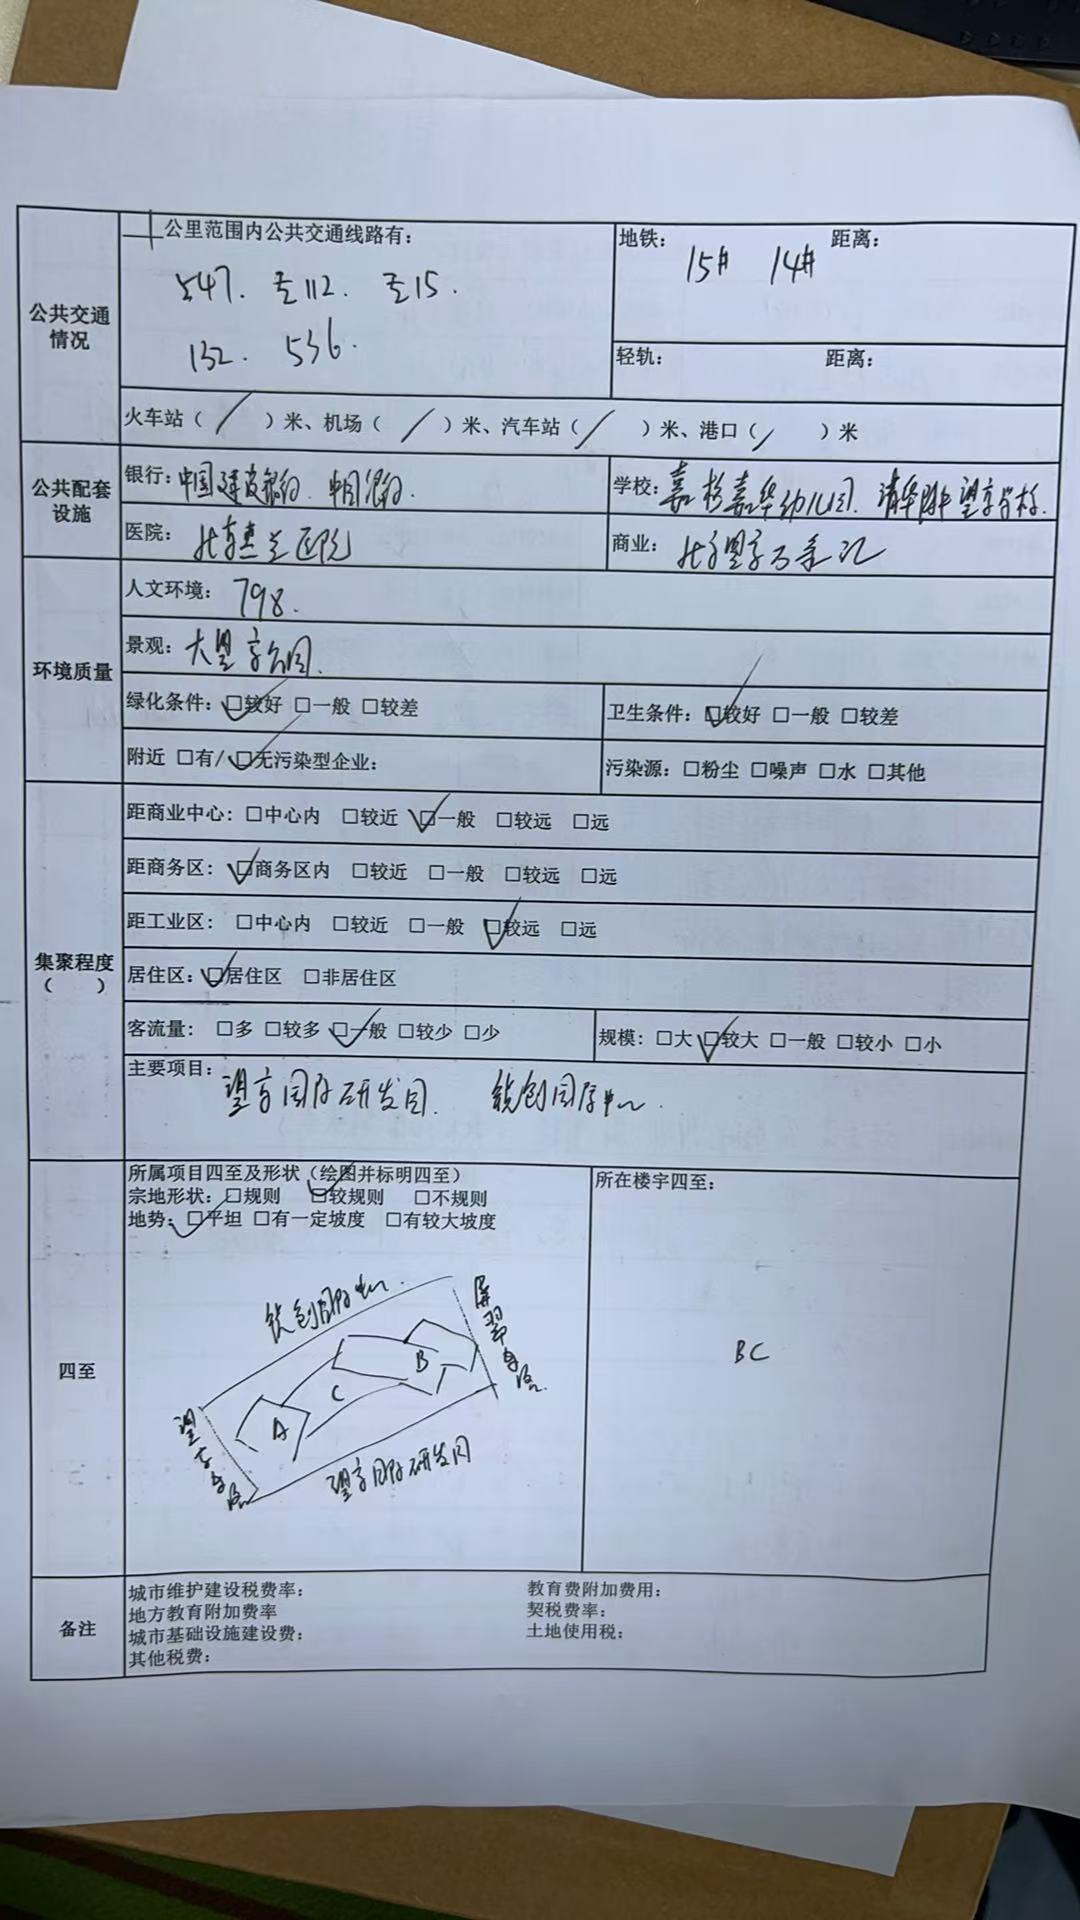 公共交通
情况
一公里范围内公共交通线路有：
547. 专112. 专15.
132. 536.
地铁： 15# 14# 距离：
轻轨： 距离：
火车站（/）米、机场（/）米、汽车站（/）米、港口（/）米
公共配套
设施
银行：中国建设银行、中国银行.
学校：嘉格嘉华幼儿园. 清华附中望京学校.
医院：北京 医院
商业：北京望京万 汇
环境质量
人文环境：798.
景观：大望京公园.
绿化条件：☑较好 □一般 □较差
卫生条件：☑较好 □一般 □较差
附近 □有/☑无污染型企业：
污染源：□粉尘 □噪声 □水 □其他
集聚程度
（ ）
距商业中心：□中心内 □较近 ☑一般 □较远 □远
距商务区：☑商务区内 □较近 □一般 □较远 □远
距工业区：□中心内 □较近 □一般 ☑较远 □远
居住区：☑居住区 □非居住区
客流量：□多 □较多 ☑一般 □较少 □少
规模：□大 ☑较大 □一般 □较小 □小
主要项目：望京国际研发园. 锐创国际中心.
四至
所属项目四至及形状（绘图并标明四至）
宗地形状：□规则 ☑较规则 □不规则
地势：☑平坦 □有一定坡度 □有较大坡度
锐创国际中心.
屏翠东路.
B
C
A
望京东路
望京国际研发园
所在楼宇四至：
BC
备注
城市维护建设税费率： 教育费附加费用：
地方教育附加费率 契税费率：
城市基础设施建设费： 土地使用税：
其他税费：